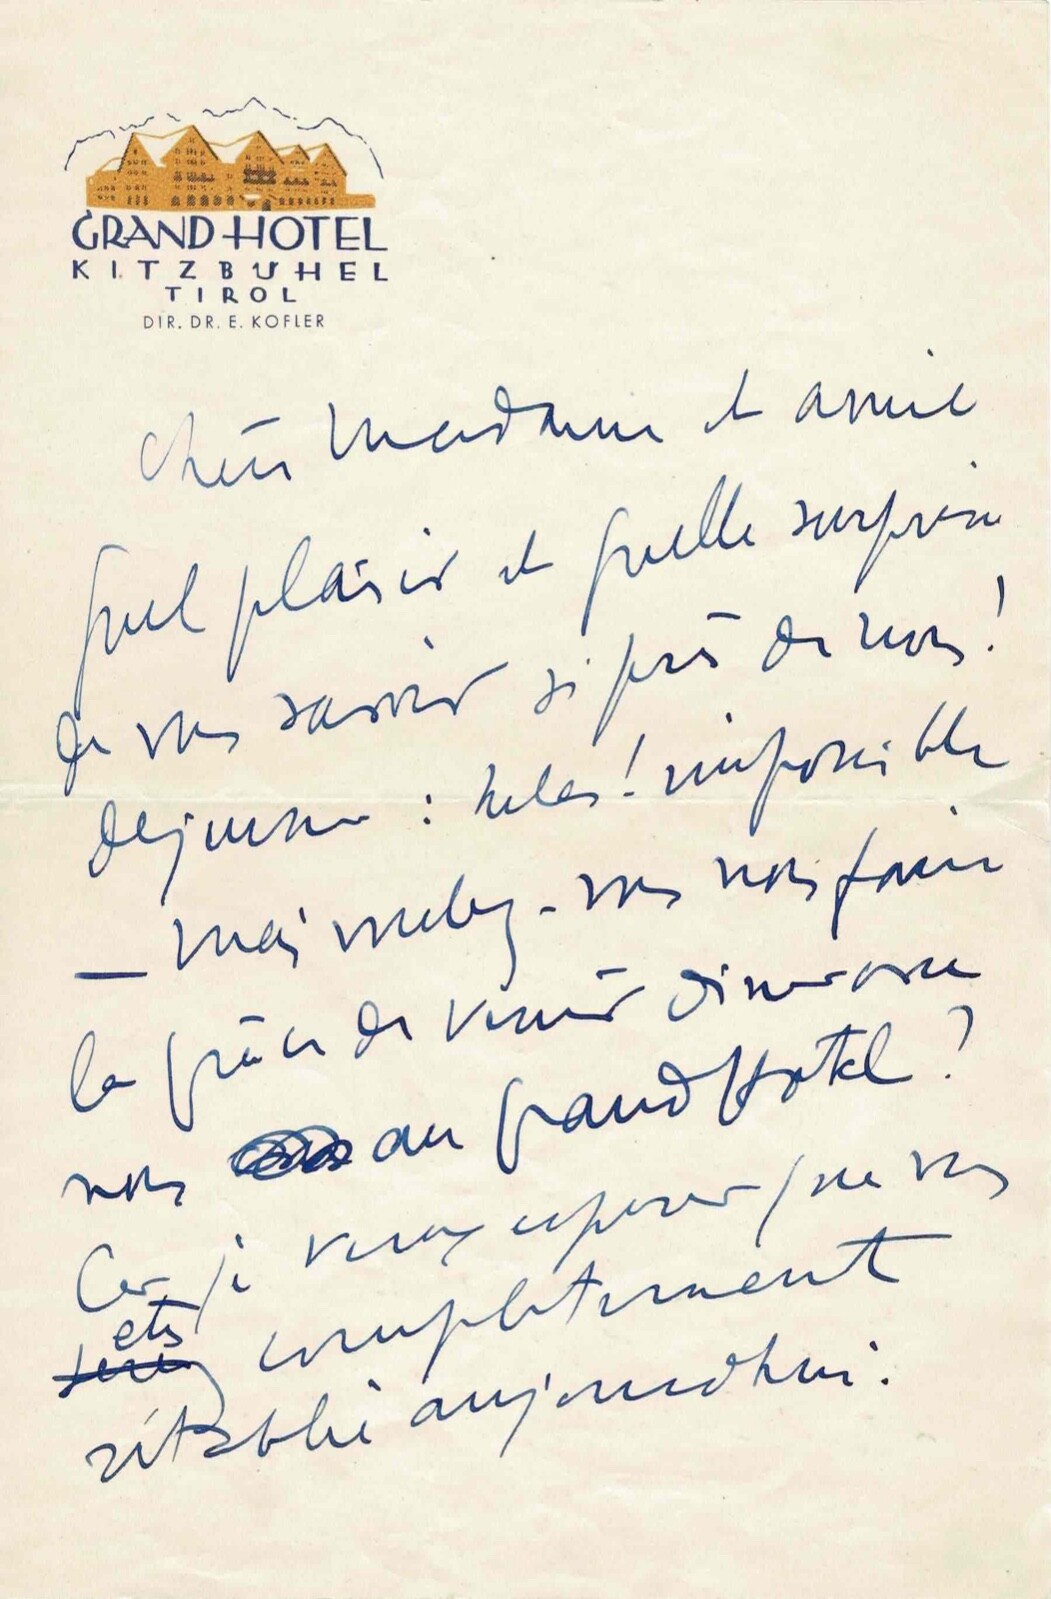 GRAND HOTEL
KITZBÜHEL
TIROL
DIR. DR. E. KOFLER
Chère Madame et amie
Quel plaisir et quelle surprise
de vous savoir si près de nous!
Dejeuner : helas! impossible
— Mais voulez-vous nous faire
la grâce de venir diner avec
nous au Grand Hotel?
Car je veux esperer que vous
etes complètement
rétablie aujourdhui.